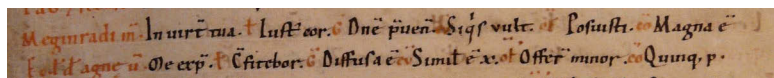 Meginradi m̅. In virt̅ tua. ł Iust̅ cor. G Dn̅e p̅uen̅. Siq̇s vult. of Posuisti. co Magna e̅
agne v̅. Me exp̅. ł C̅fitebor. G Diffusa e̅ co Simil̅ e̅ x. of Offer̅ minor. co Quinq, p.